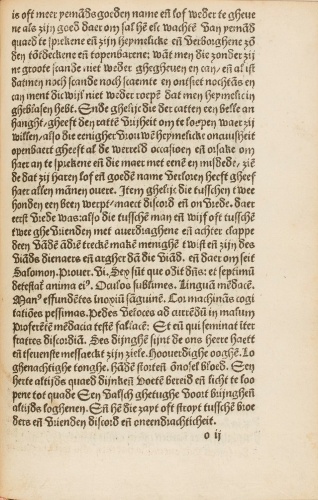 is oft meer yemāds goeden name eñ lof weder te gheue
ne als zijn goed daer om sal hē elc wachtē van yemād
quaed te sprekene eñ zijn heymelicke eñ verborghene zō
den tōtdeckene eñ topenbarene; want men die zonder zij
ne groote scande niet weder ghegheuen en can, eñ al ist
datmen noch scande noch scaemte en ontsiet nochtās en
can ment die wijf niet weder roepē dat men heymelic in
gheblasen hebt. Ende ghelijc die der catten een belle an
hanght, gheeft den cattē vrijheit om te loopen waer zij
willen, also die eenigher vrouwē heymelicke oncuusheit
openbaert gheeft al de werreld occasioen eñ orsake om
haer an te sprekene eñ die maer met eenē en misdede, ziē
de dat zij haren lof eñ goedē name verloren heeft gheef
haer allen mānen ouere. Item ghelijc die tusschen twee
honden een been werpt, maect discord eñ on vrede. daer
eerst vrede was: also die tusschē man eñ wijf oft tusschē
twee ghevrienden met auerdraghene eñ achter clappe
deen vādē ādrē trecke makē menighē twist eñ zijn des
viāds dienaers eñ arghere dā die viād. eñ daer om seit
Salomon. Prouer. vi. Sex sūt que odit dn̄s: et septimū
detestat̄ anima ei⁹. Oculos sublimes. Linguam mēdacē.
Man⁹ effundētes inoxiū sāguinē. Cor machinās cogi
tatiōes pessimas. Pedes veloces ad currēdū in malum
Proferētē mēdacia testē fallacē: Et eū qui seminat iter
fratres discordiā. Ses dijnghē sijnt die ons herre haett
eñ tseuenste messaerckt zijn ziele. Hoouerdighe ooghē. Lo
ghenachtighe tonghe. hādē stortēn ōnosel bloed. Een
herte altijds quaed dijnkēn voetē bereid eñ licht te loo
pene tot quade Een valsch ghetughe voort brijnghēn
altijds loghenen. Eñ hē die zayt oft stroyt tusschē broe
ders eñ vrienden discord eñ oneendrachticheit.
o ij